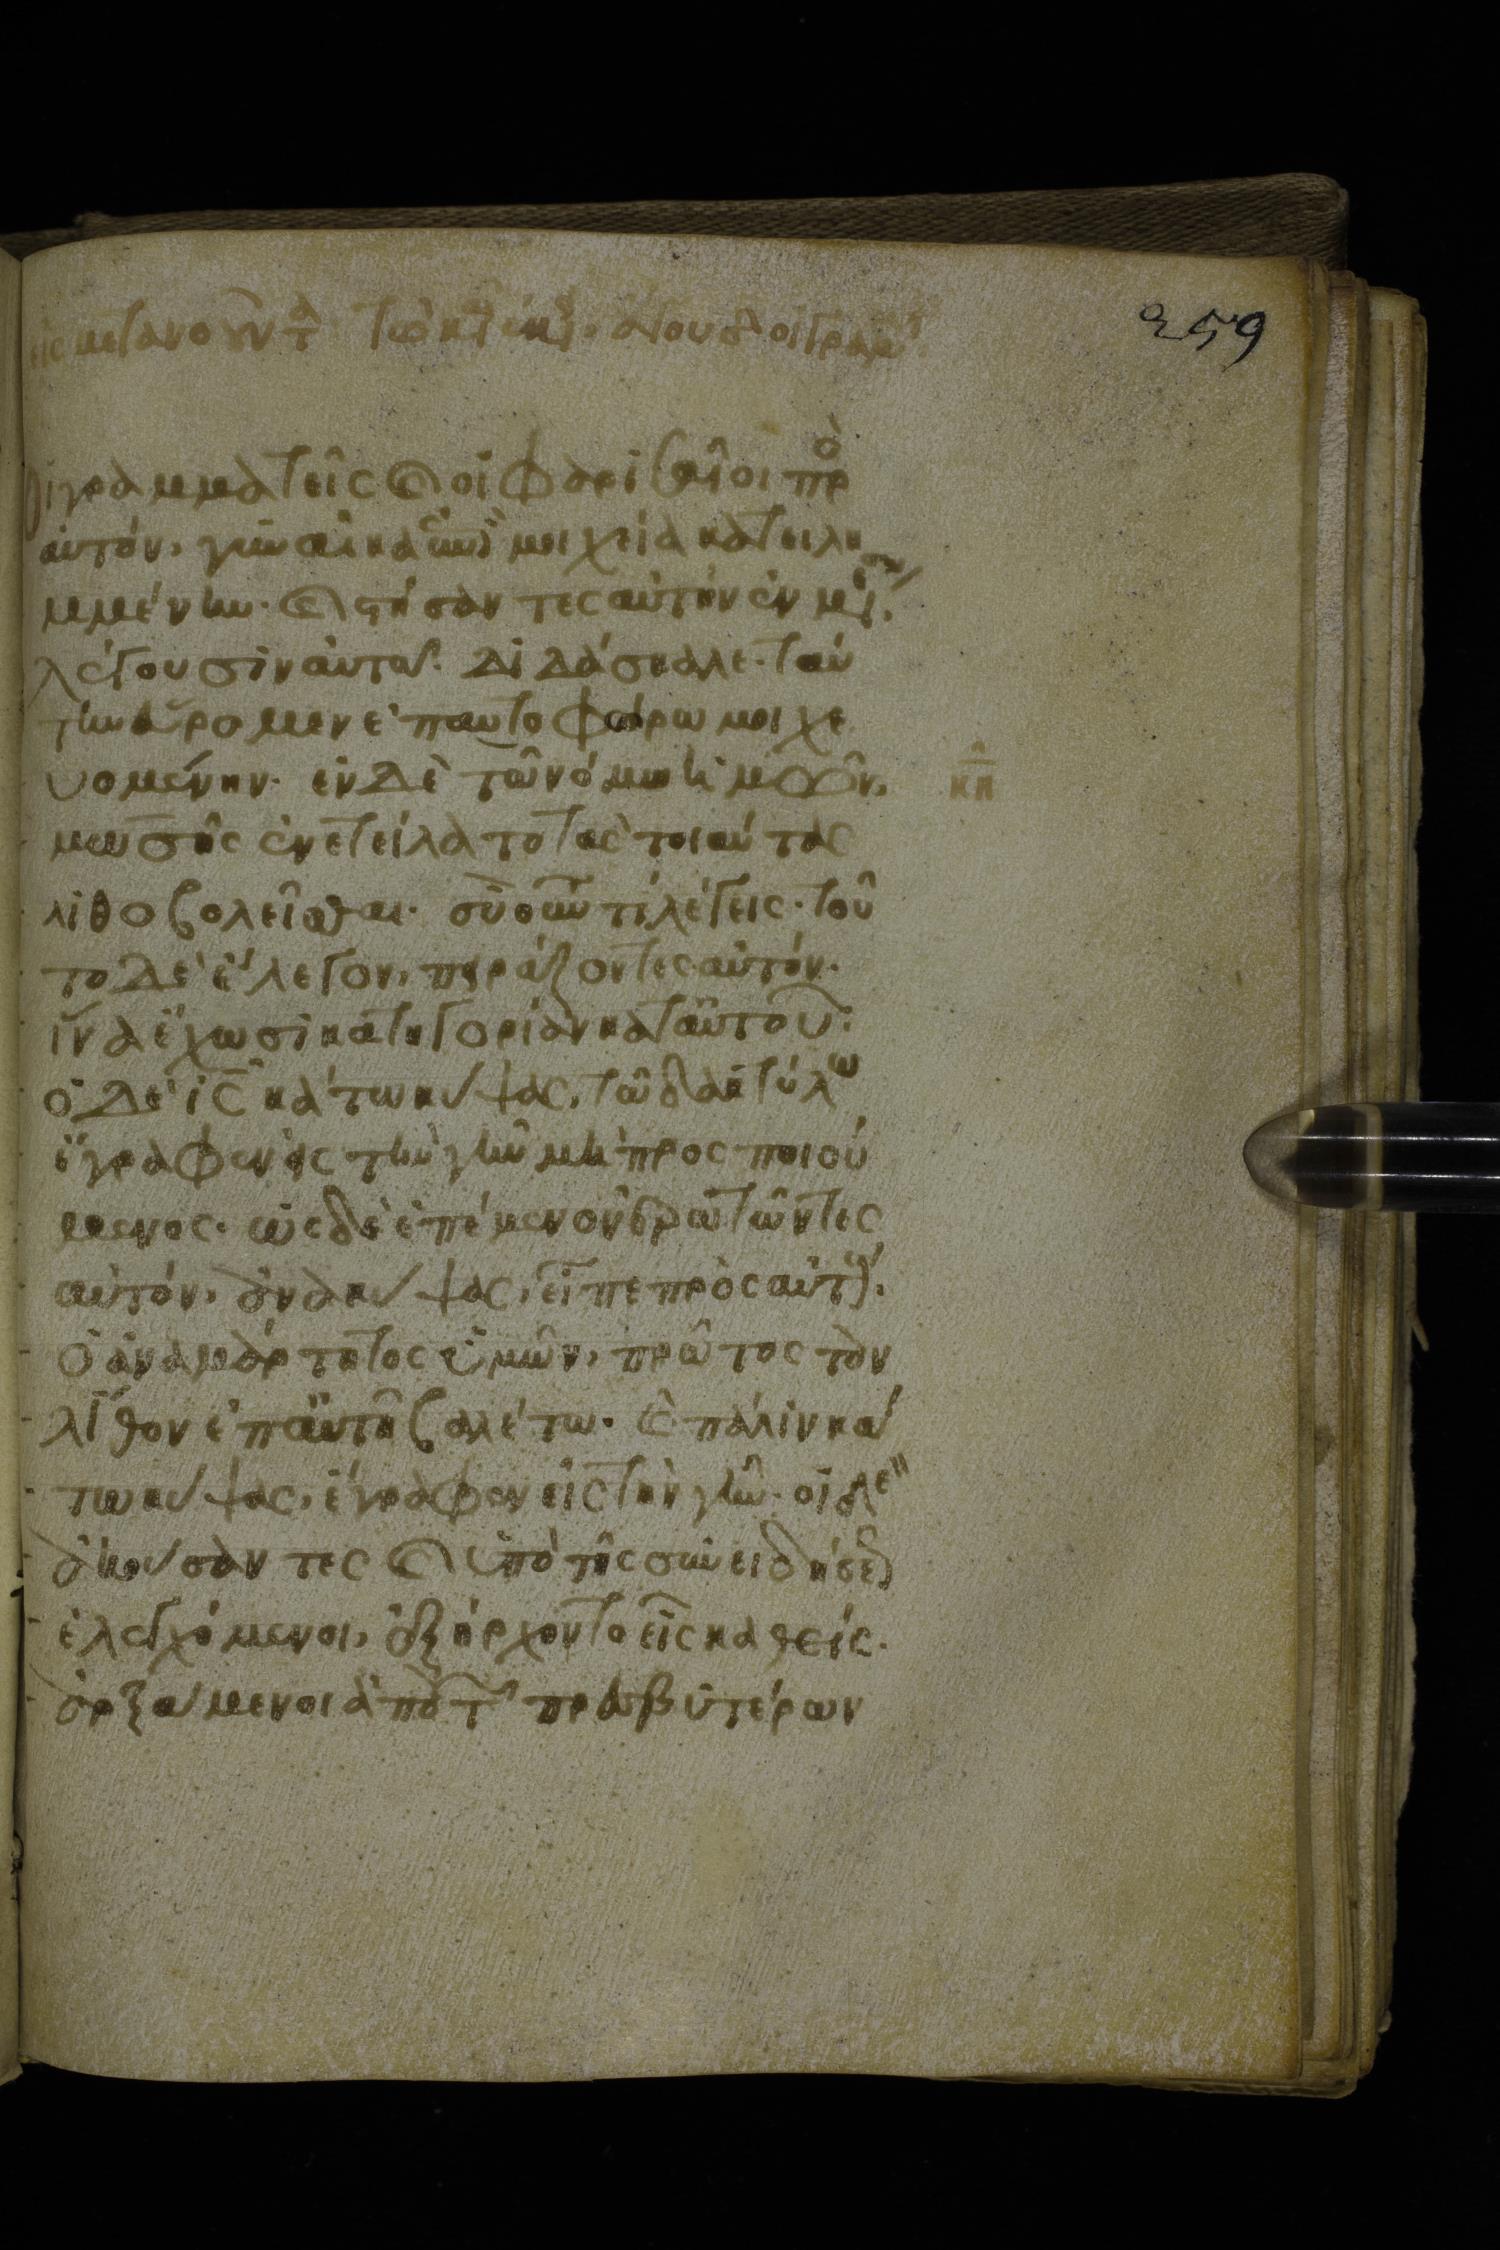 εἰς μετανοοῦντ τῶ καιρ ἐκείν. ἄγουσι οἱ γραμμ
259
οἱ γραμματεῖς καὶ οἱ φαρισαῖοι πρὸ
αὐτόν, γυναῖκα ἐπὶ μοιχεία κατειλη
μμένην. καὶ στήσαντες αὐτὴν ἐν μέσω,
λέγουσιν αὐτῶ. διδάσκαλε. ταύ
την εὕρομεν ἐπαυτοφώρω μοιχε
υομένην. ἐν δὲ τῶ νόμω ἡμῶν,
κπ
μωσῆς ἐνετείλατο τὰς τοιαύτας
λιθοβολεῖσθαι. σὺ οὖν τί λέγεις. τοῦ
το δὲ ἔλεγον, πειράζοντες αὐτόν.
ἵνα ἔχωσι κατηγορίαν κατ αὐτοῦ.
ὁ δὲ ις κάτω κύψας, τῶ δακτύλω
ἔγραφεν εἰς τὴν γῆν μὴ προσποιού
μενος. ὡς δὲ ἐπέμενον ἐρωτῶντες
αὐτόν, ἀνακύψας, εἶπε πρὸς αὐτούς.
ὁ ἀναμάρτητος ὑμῶν, πρῶτος τὸν
λίθον ἐπ αὐτῆ βαλέτω. καὶ πάλιν κά
τω κύψας, ἔγραφεν εἰς τὴν γῆν. οἱ δὲ
ἀκούσαντες καὶ ὑπὸ τῆς συνειδήσεως
ἐλεγχόμενοι, ἐξήρχοντο εἷς καθεῖς.
ἀρξάμενοι ἀπὸ τῶν πρεσβυτέρων